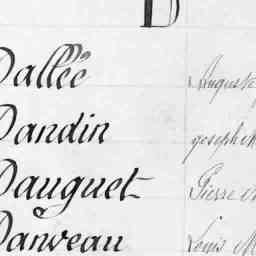 D
Dallée Auguste
Dandin joseph
Dauguet Pierre
Danveau Louis M